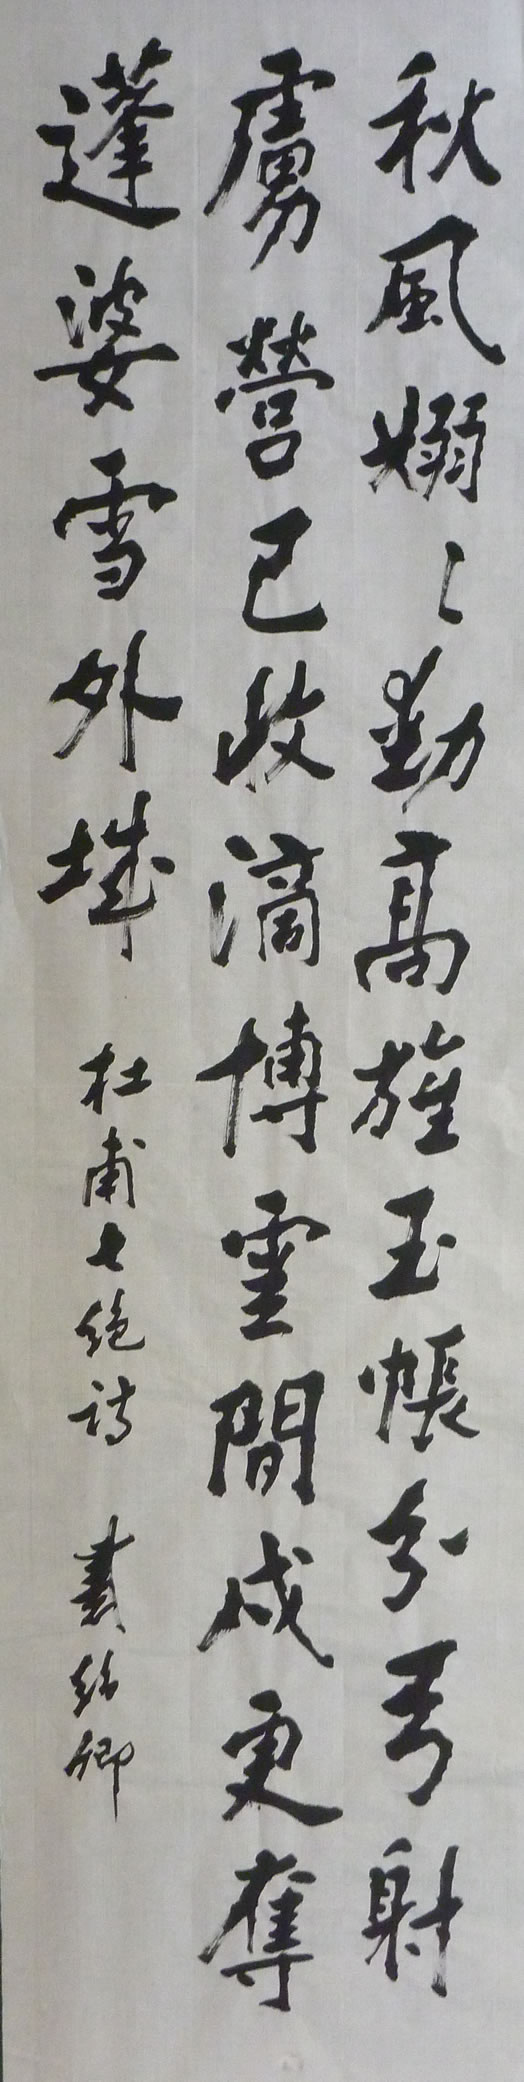 秋風嫋〻動高旌玉帳分弓射
虜營已收滴博雲間戍更奪
蓬婆雪外城 杜甫七絕詩 戴紹卿